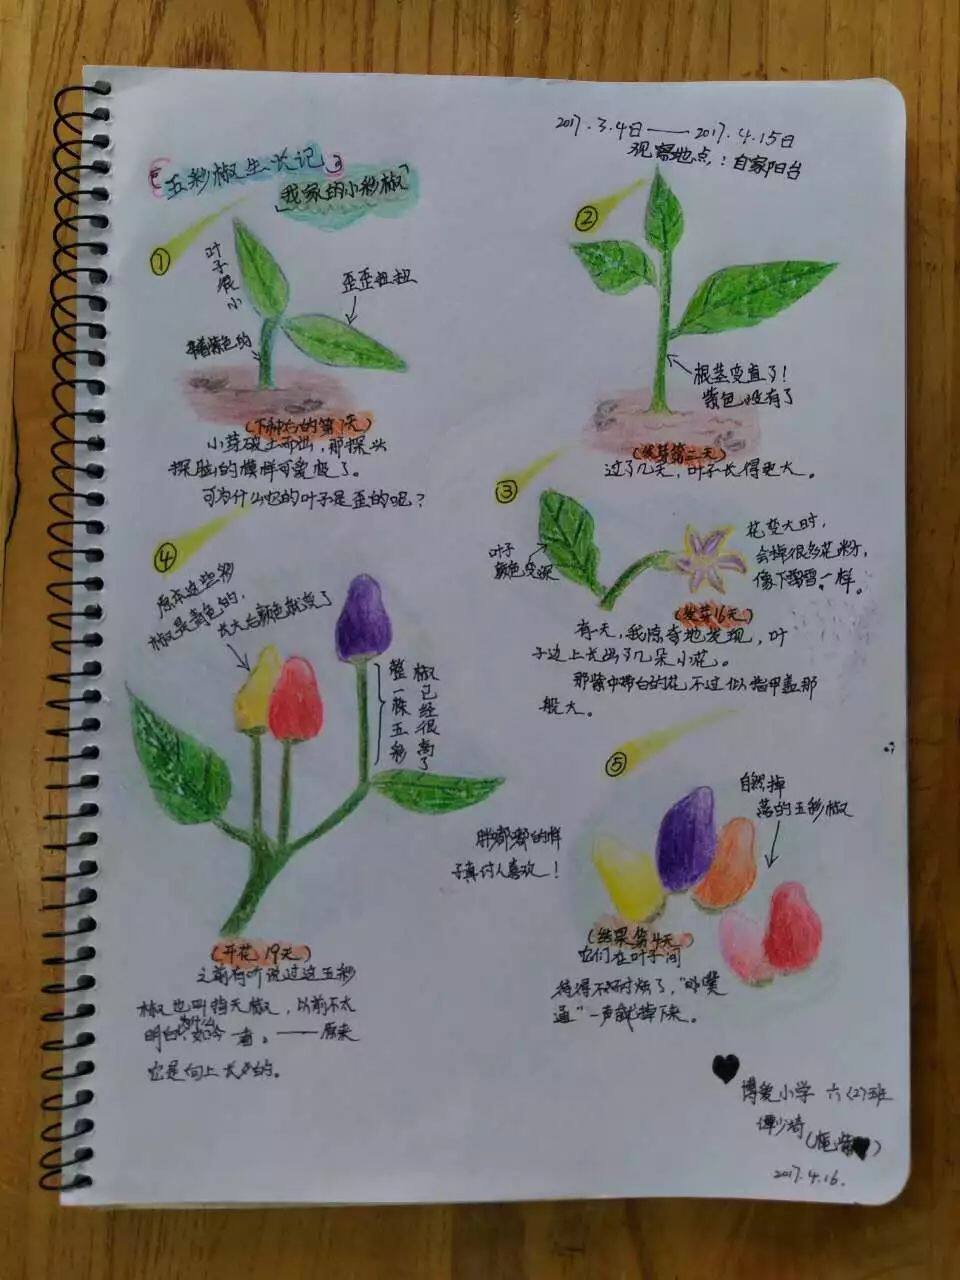 2017.3.4日——2017.4.15日
观察地点：自家阳台
『五彩椒生长记』
「我家的小彩椒」
①
叶子很小
歪歪扭扭
带着紫色的
(下种后的第7天)
小芽破土而出，那探头
探脑的模样可爱极了。
可为什么它的叶子是歪的呢？
②
根茎变直了！
紫色没有了
(发芽第二天)
过了几天，叶子长得更大。
③
叶子
颜色变深
花变大时，
会掉很多花粉，
像下雪一样。
(发芽16天)
有天，我惊奇地发现，叶
子边上长出了几朵小花。
那紫中带白的花不过似指甲盖那
般大。
④
原本这些彩
椒是青色的，
长大后颜色就变了
整一株五彩
椒已经很高了
(开花19天)
之前有听说过这五彩
椒也叫指天椒，以前不太
明白为什么，如今一看。——原来
它是向上长的。
⑤
自然掉
落的五彩椒
胖嘟嘟的样
子真讨人喜欢！
(结果第4天)
它们在叶子间
待得不耐烦了，“噗
通”一声就掉下来。
博爱小学 六(2)班
谭少琦
2017.4.16.